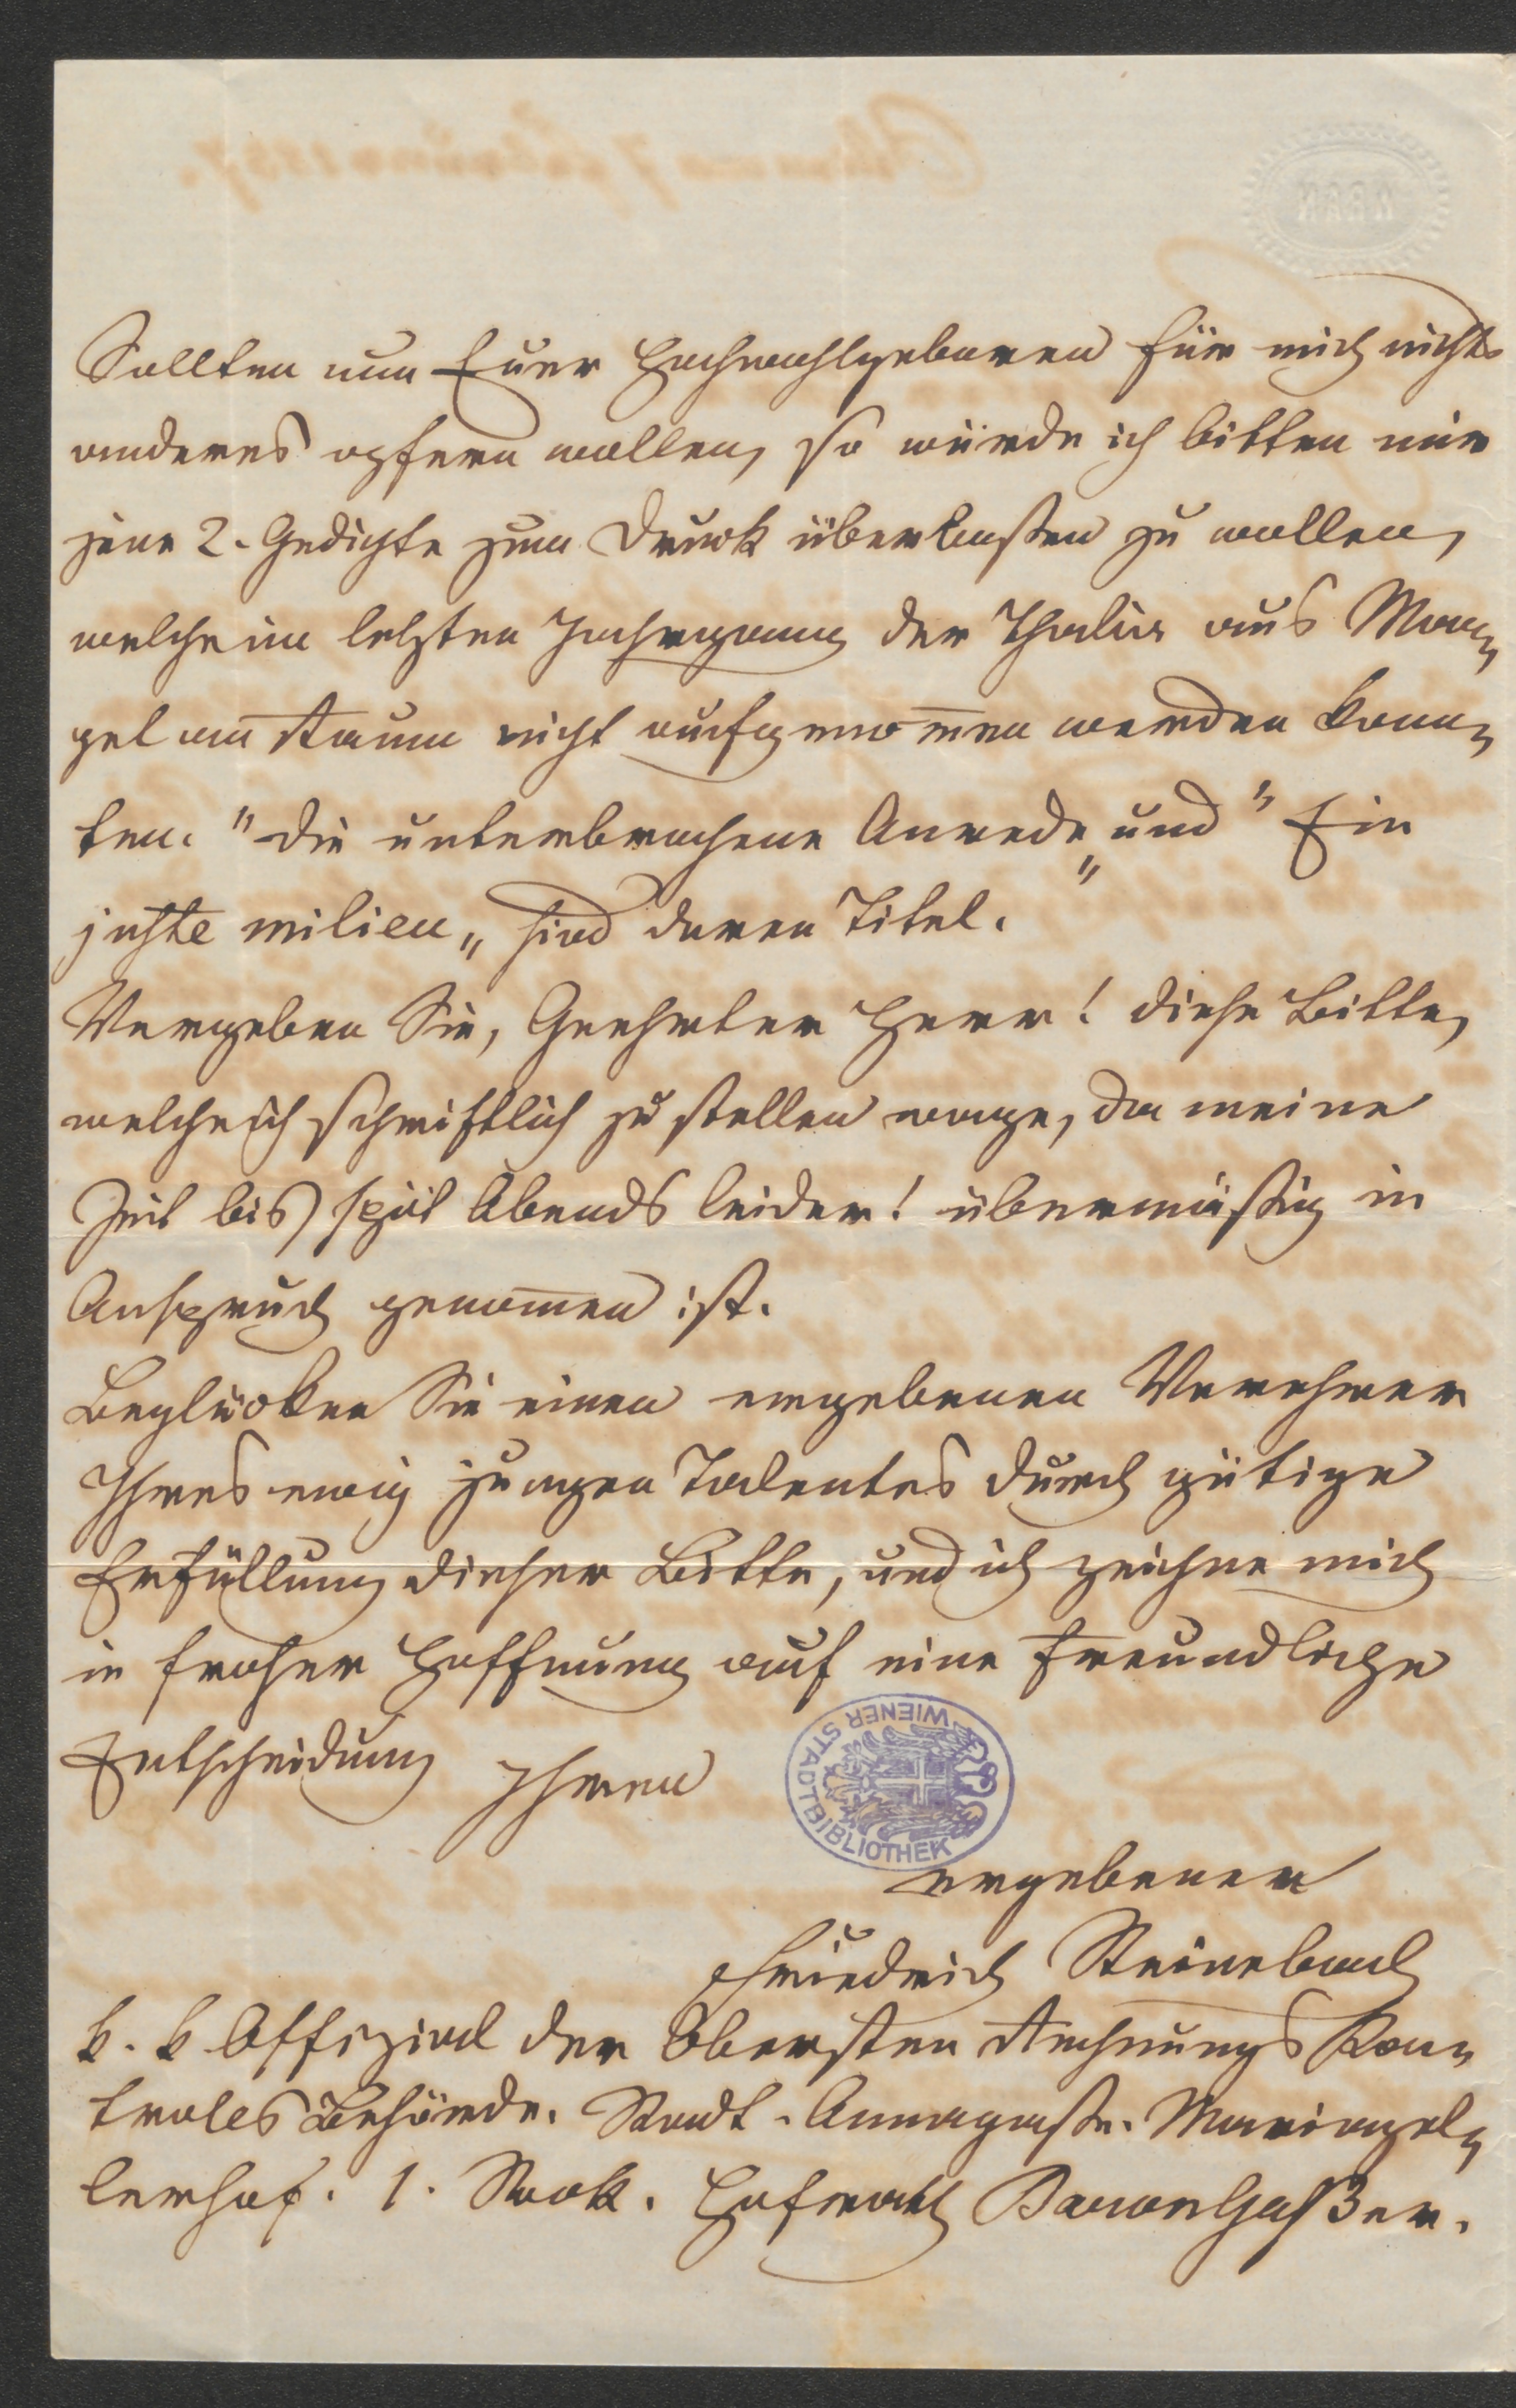 Sollten nun Euer Hochwohlgeboren für mich nichts
anderes opfern wollen, so würde ich bitten mir
jene 2. Gedichte zum Druck überlassen zu wollen,
welche im letzten Jahrgang der Thalia aus Man=
gel an Raum nicht aufgenom̅en werden konn=
ten. "Die unterbrochene Anrede" und "Ein
juste milieu" sind deren Titel.
Vergeben Sie, Geehrter Herr! diese Bitte,
welche ich schriftlich zu stellen wage, da meine
Zeit bis spät Abends leider! übermäßig in
Anspruch genom̅en ist.
Beglücken Sie einen ergebenen Verehrer
Ihres ewig jungen Talentes durch gütige
Erfüllung dieser Bitte, und ich zeichne mich
in froher Hoffnung auf eine freundliche
Entscheidung Ihren
WIENER STADTBIBLIOTHEK
ergebenen
Friedrich Steinebach
k. k Offizial der Obersten Rechnungs Kon=
troles Behörde. Stadt. Annagasse. Mariazel=
lerhof. 1. Stock. Hofrath Baron